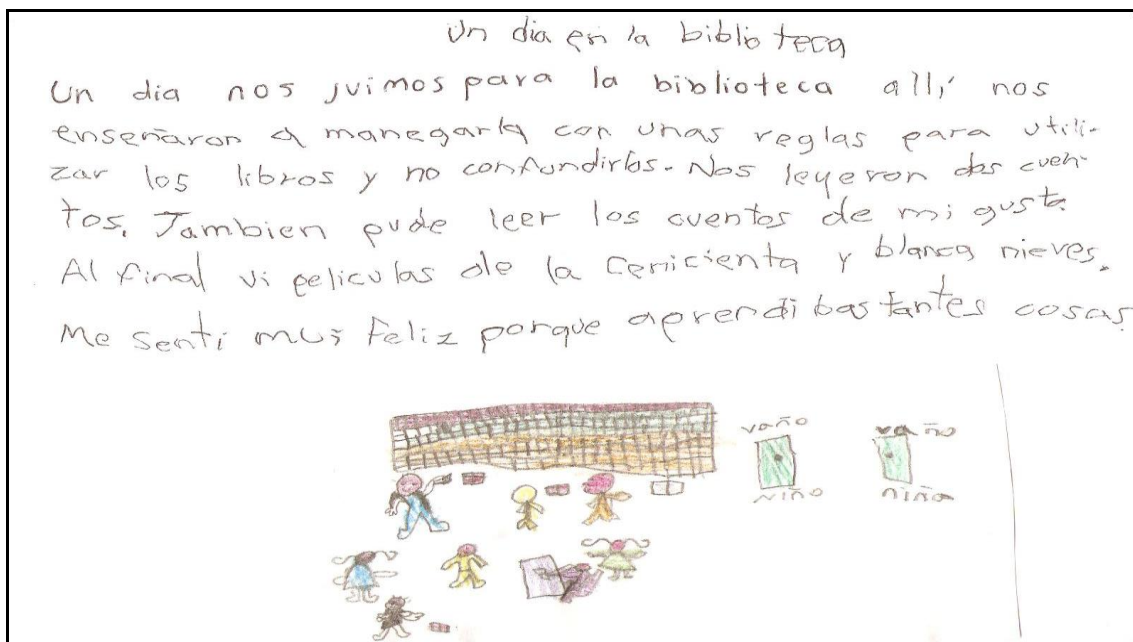 Un dia en la biblioteca
Un dia nos juimos para la biblioteca allí nos
enseñaron a manegarla con unas reglas para utili-
zar los libros y no confundirlos. Nos leyeron dos cuen-
tos. Tambien pude leer los cuentos de mi gusto.
Al final vi peliculas de la cenicienta y blanca nieves.
Me sentí mui feliz porque aprendi bastantes cosas
vaño vaño
niño niña